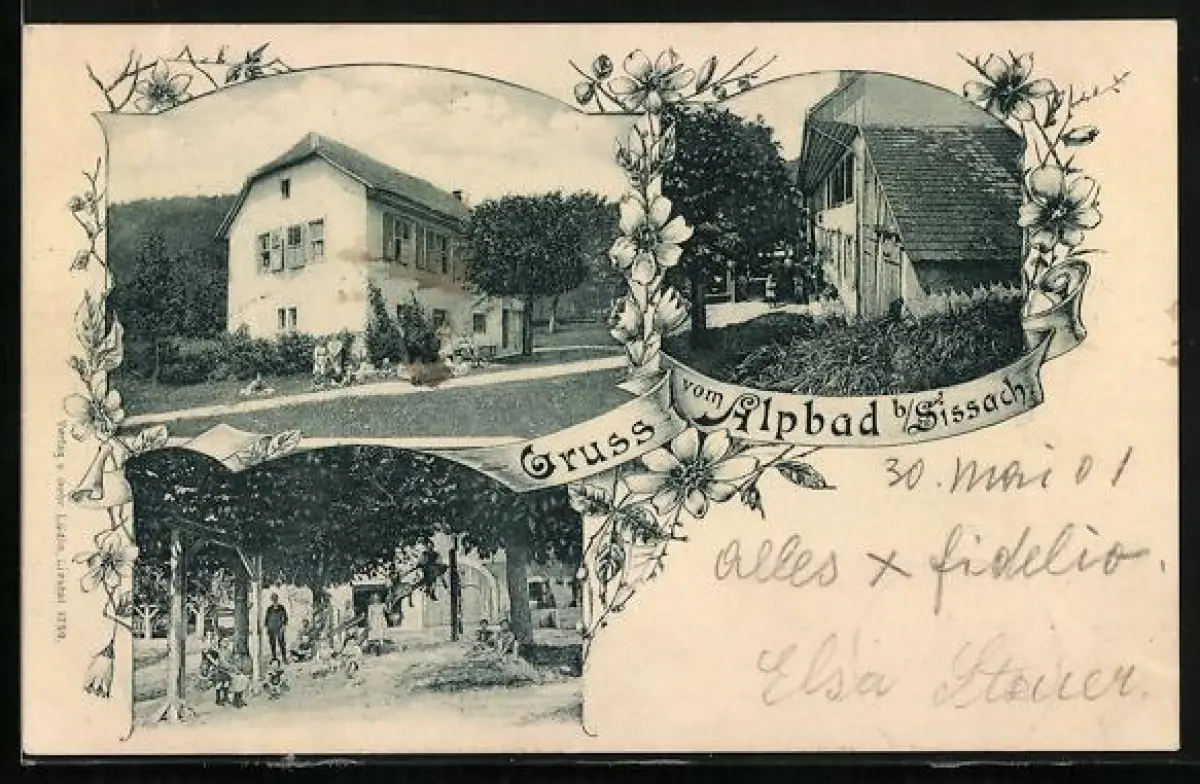 Gruss vom Alpbad b/Sissach.
30. Mai 01
Alles x fidelio.
Elsa
Verlag v. Lüdin, Liestal